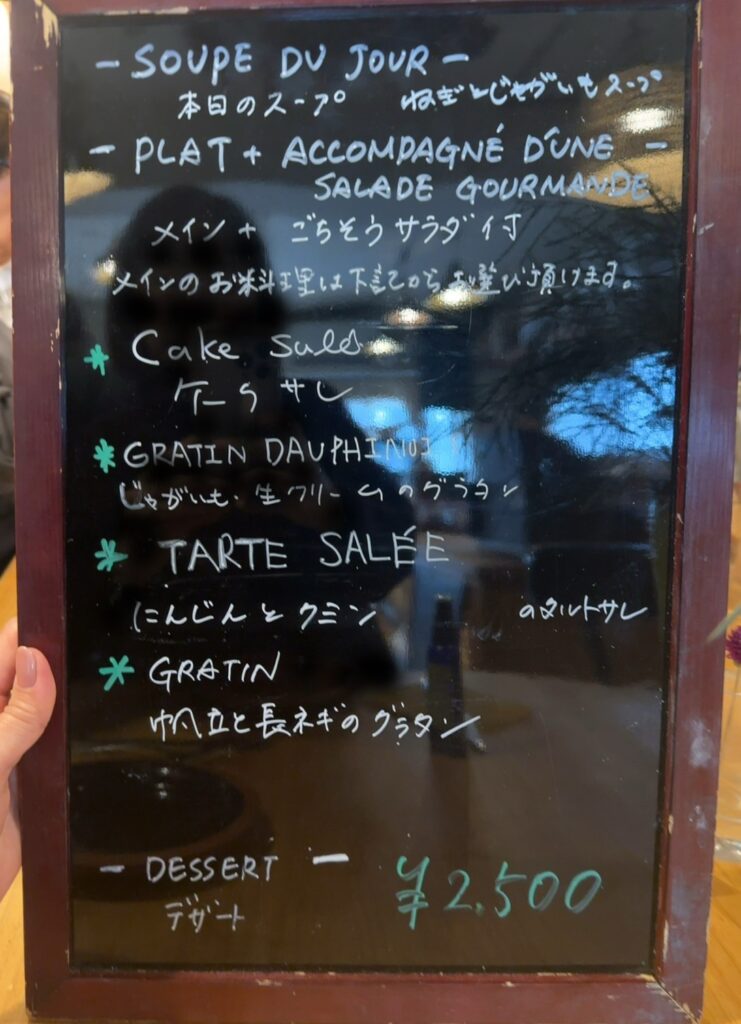 - SOUPE DU JOUR -
本日のスープ ねぎとじゃがいもスープ
- PLAT + ACCOMPAGNÉ D'UNE -
SALADE GOURMANDE
メイン + ごちそうサラダ付
メインのお料理は下記からお選び頂けます。
* Cake salé
ケークサレ
* GRATIN DAUPHINOIS
じゃがいも・生クリームのグラタン
* TARTE SALÉE
にんじんとクミン のタルトサレ
* GRATIN
帆立と長ネギのグラタン
- DESSERT - ¥2.500
デザート